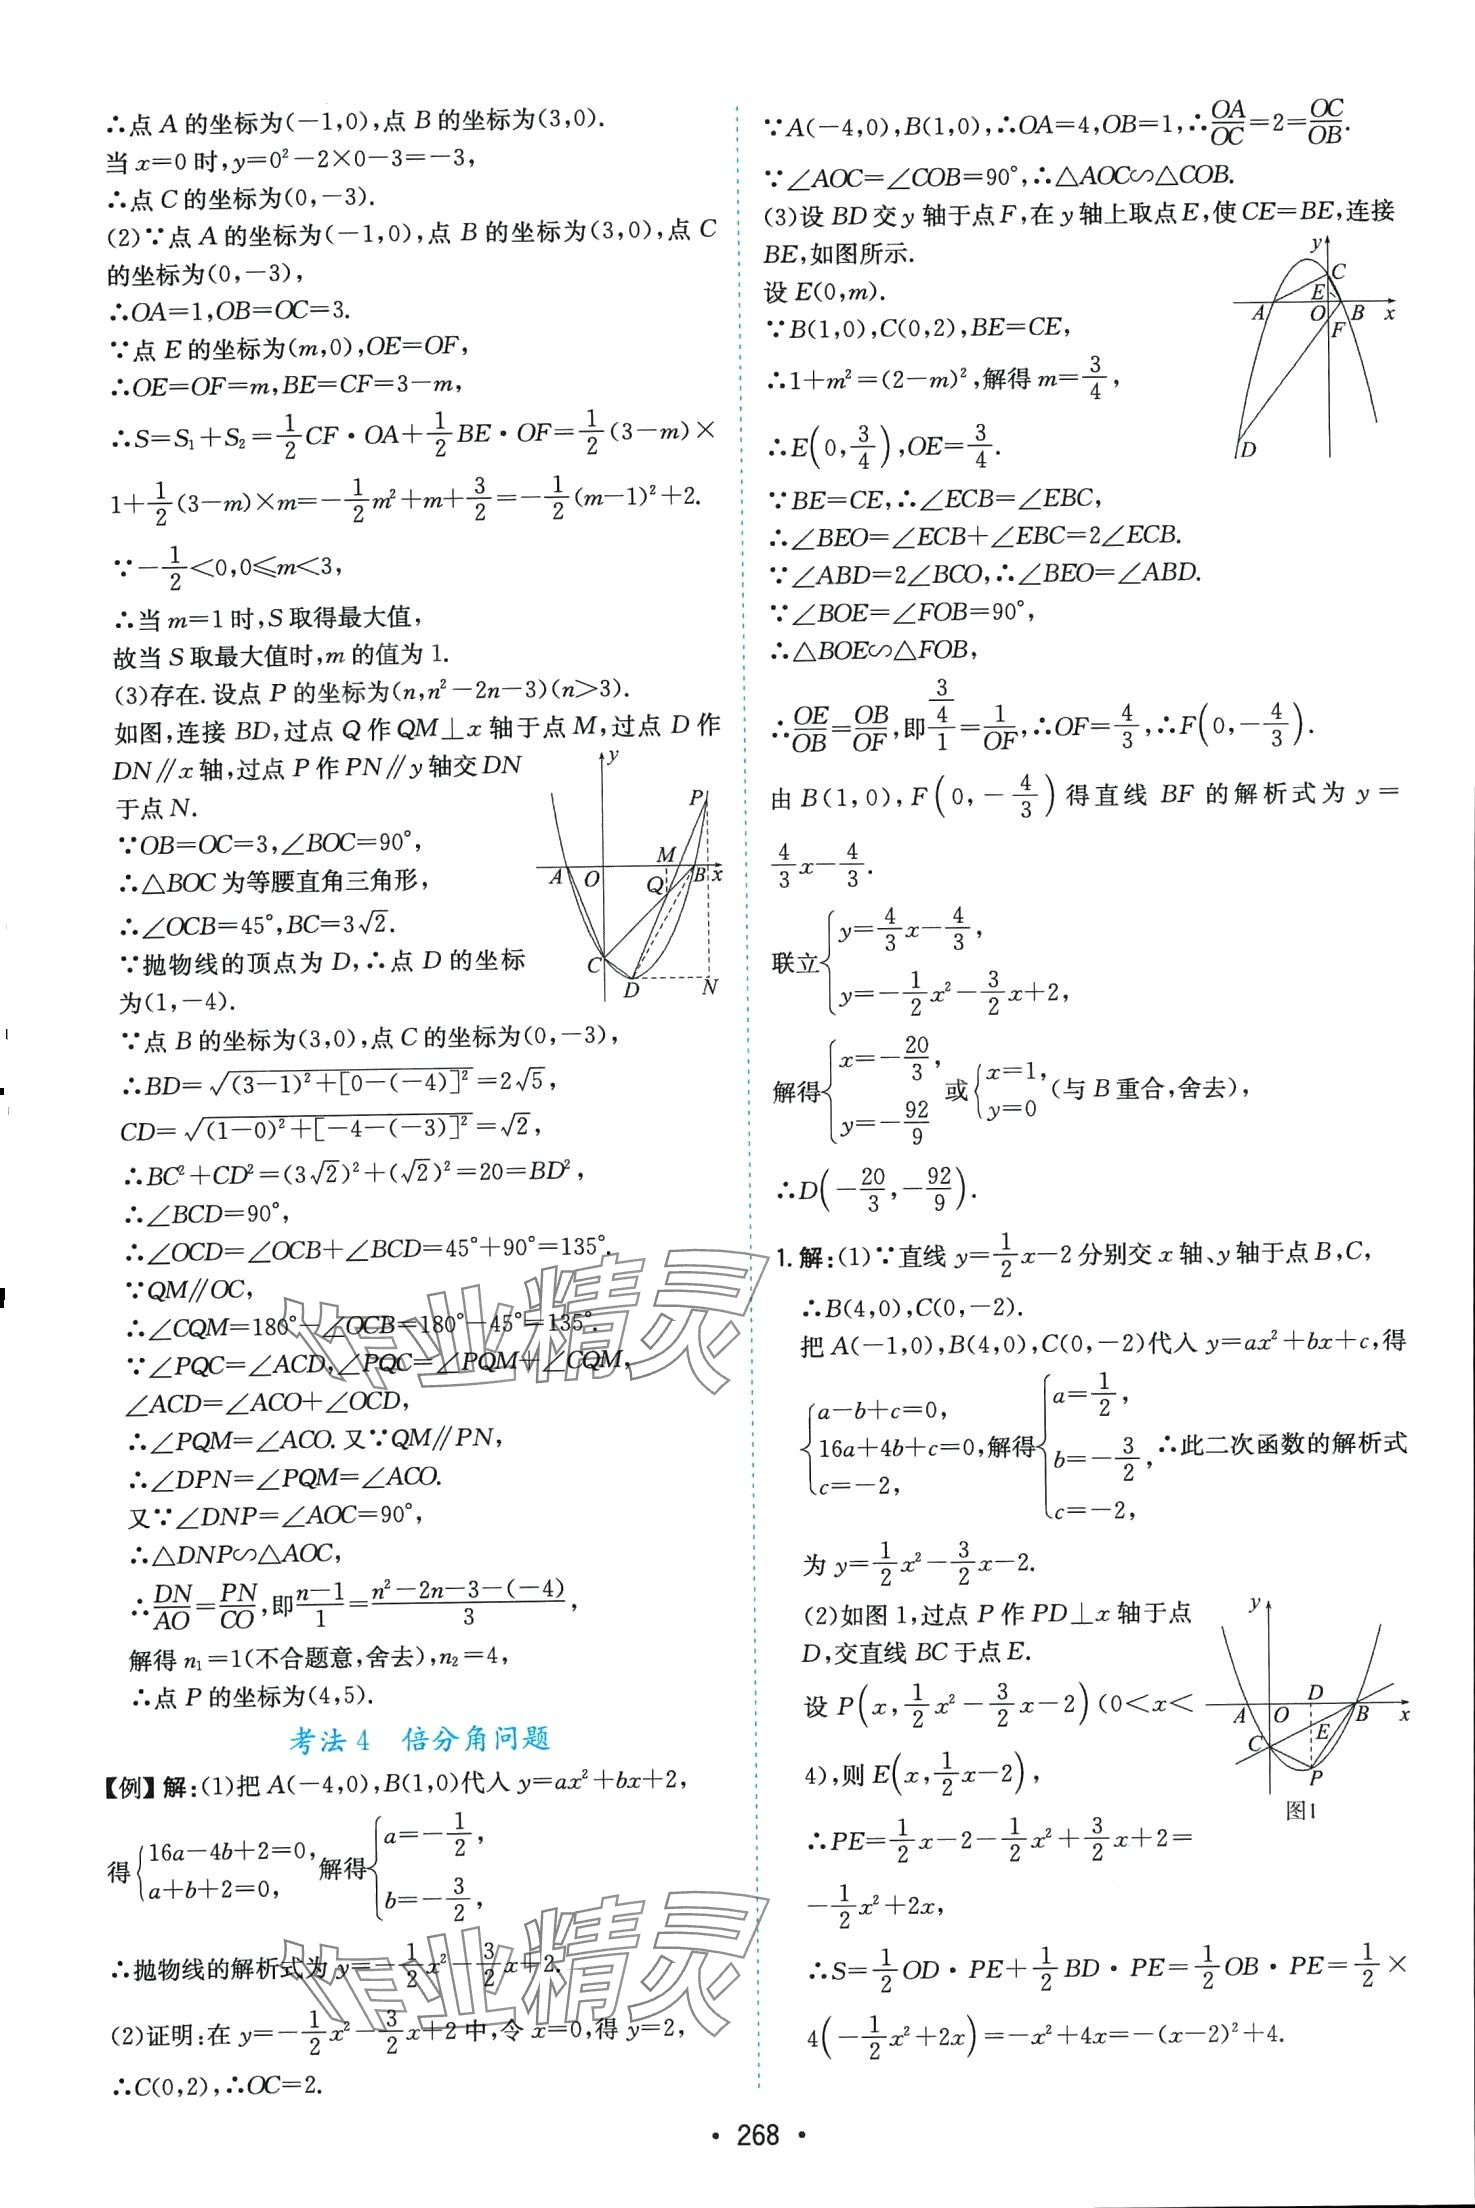 ∴点 A 的坐标为(−1,0),点 B 的坐标为(3,0).
当 x=0 时,y=0²−2×0−3=−3,
∴点 C 的坐标为(0,−3).
(2)∵点 A 的坐标为(−1,0),点 B 的坐标为(3,0),点 C
的坐标为(0,−3),
∴OA=1,OB=OC=3.
∵点 E 的坐标为(m,0),OE=OF,
∴OE=OF=m,BE=CF=3−m,
∴S=S₁+S₂=1/2 CF·OA+1/2 BE·OF=1/2(3−m)×
1+1/2(3−m)×m=−1/2 m²+m+3/2=−1/2(m−1)²+2.
∵−1/2<0,0≤m<3,
∴当 m=1 时,S 取得最大值,
故当 S 取最大值时,m 的值为 1.
(3)存在.设点 P 的坐标为(n,n²−2n−3)(n>3).
如图,连接 BD,过点 Q 作 QM⊥x 轴于点 M,过点 D 作
DN∥x 轴,过点 P 作 PN∥y 轴交 DN
于点 N.
∵OB=OC=3,∠BOC=90°,
∴△BOC 为等腰直角三角形,
∴∠OCB=45°,BC=3√2.
∵抛物线的顶点为 D,∴点 D 的坐标
为(1,−4).
y
P
M
A O B x
Q
C
D N
∵点 B 的坐标为(3,0),点 C 的坐标为(0,−3),
∴BD=√((3−1)²+[0−(−4)]²)=2√5,
CD=√((1−0)²+[−4−(−3)]²)=√2,
∴BC²+CD²=(3√2)²+(√2)²=20=BD²,
∴∠BCD=90°,
∴∠OCD=∠OCB+∠BCD=45°+90°=135°.
∵QM∥OC,
∴∠CQM=180°−∠OCB=180°−45°=135°.
∵∠PQC=∠ACD,∠PQC=∠PQM+∠CQM,
∠ACD=∠ACO+∠OCD,
∴∠PQM=∠ACO.又∵QM∥PN,
∴∠DPN=∠PQM=∠ACO.
又∵∠DNP=∠AOC=90°,
∴△DNP∽△AOC,
∴DN/AO=PN/CO,即(n−1)/1=(n²−2n−3−(−4))/3,
解得 n₁=1(不合题意,舍去),n₂=4,
∴点 P 的坐标为(4,5).
考法 4 倍分角问题
【例】解:(1)把 A(−4,0),B(1,0)代入 y=ax²+bx+2,
得{16a−4b+2=0, a+b+2=0, 解得{a=−1/2, b=−3/2,
∴抛物线的解析式为 y=−1/2 x²−3/2 x+2.
(2)证明:在 y=−1/2 x²−3/2 x+2 中,令 x=0,得 y=2,
∴C(0,2),∴OC=2.
∵A(−4,0),B(1,0),∴OA=4,OB=1,∴OA/OC=2=OC/OB.
∵∠AOC=∠COB=90°,∴△AOC∽△COB.
(3)设 BD 交 y 轴于点 F,在 y 轴上取点 E,使 CE=BE,连接
BE,如图所示.
设 E(0,m).
∵B(1,0),C(0,2),BE=CE,
∴1+m²=(2−m)²,解得 m=3/4,
∴E(0,3/4),OE=3/4.
y
C
E
A O B x
F
D
∵BE=CE,∴∠ECB=∠EBC,
∴∠BEO=∠ECB+∠EBC=2∠ECB.
∵∠ABD=2∠BCO,∴∠BEO=∠ABD.
∵∠BOE=∠FOB=90°,
∴△BOE∽△FOB,
∴OE/OB=OB/OF,即(3/4)/1=1/OF,∴OF=4/3,∴F(0,−4/3).
由 B(1,0),F(0,−4/3)得直线 BF 的解析式为 y=
4/3 x−4/3.
联立{y=4/3 x−4/3, y=−1/2 x²−3/2 x+2,
解得{x=−20/3, y=−92/9 或{x=1, y=0 (与 B 重合,舍去),
∴D(−20/3,−92/9).
1. 解:(1)∵直线 y=1/2 x−2 分别交 x 轴、y 轴于点 B,C,
∴B(4,0),C(0,−2).
把 A(−1,0),B(4,0),C(0,−2)代入 y=ax²+bx+c,得
{a−b+c=0, 16a+4b+c=0, c=−2, 解得{a=1/2, b=−3/2, c=−2, ∴此二次函数的解析式
为 y=1/2 x²−3/2 x−2.
(2)如图 1,过点 P 作 PD⊥x 轴于点
D,交直线 BC 于点 E.
设 P(x,1/2 x²−3/2 x−2)(0<x<
4),则 E(x,1/2 x−2),
y
D
A O B x
E
C
P
图1
∴PE=1/2 x−2−1/2 x²+3/2 x+2=
−1/2 x²+2x,
∴S=1/2 OD·PE+1/2 BD·PE=1/2 OB·PE=1/2×
4(−1/2 x²+2x)=−x²+4x=−(x−2)²+4.
作业精灵
作业精灵
· 268 ·